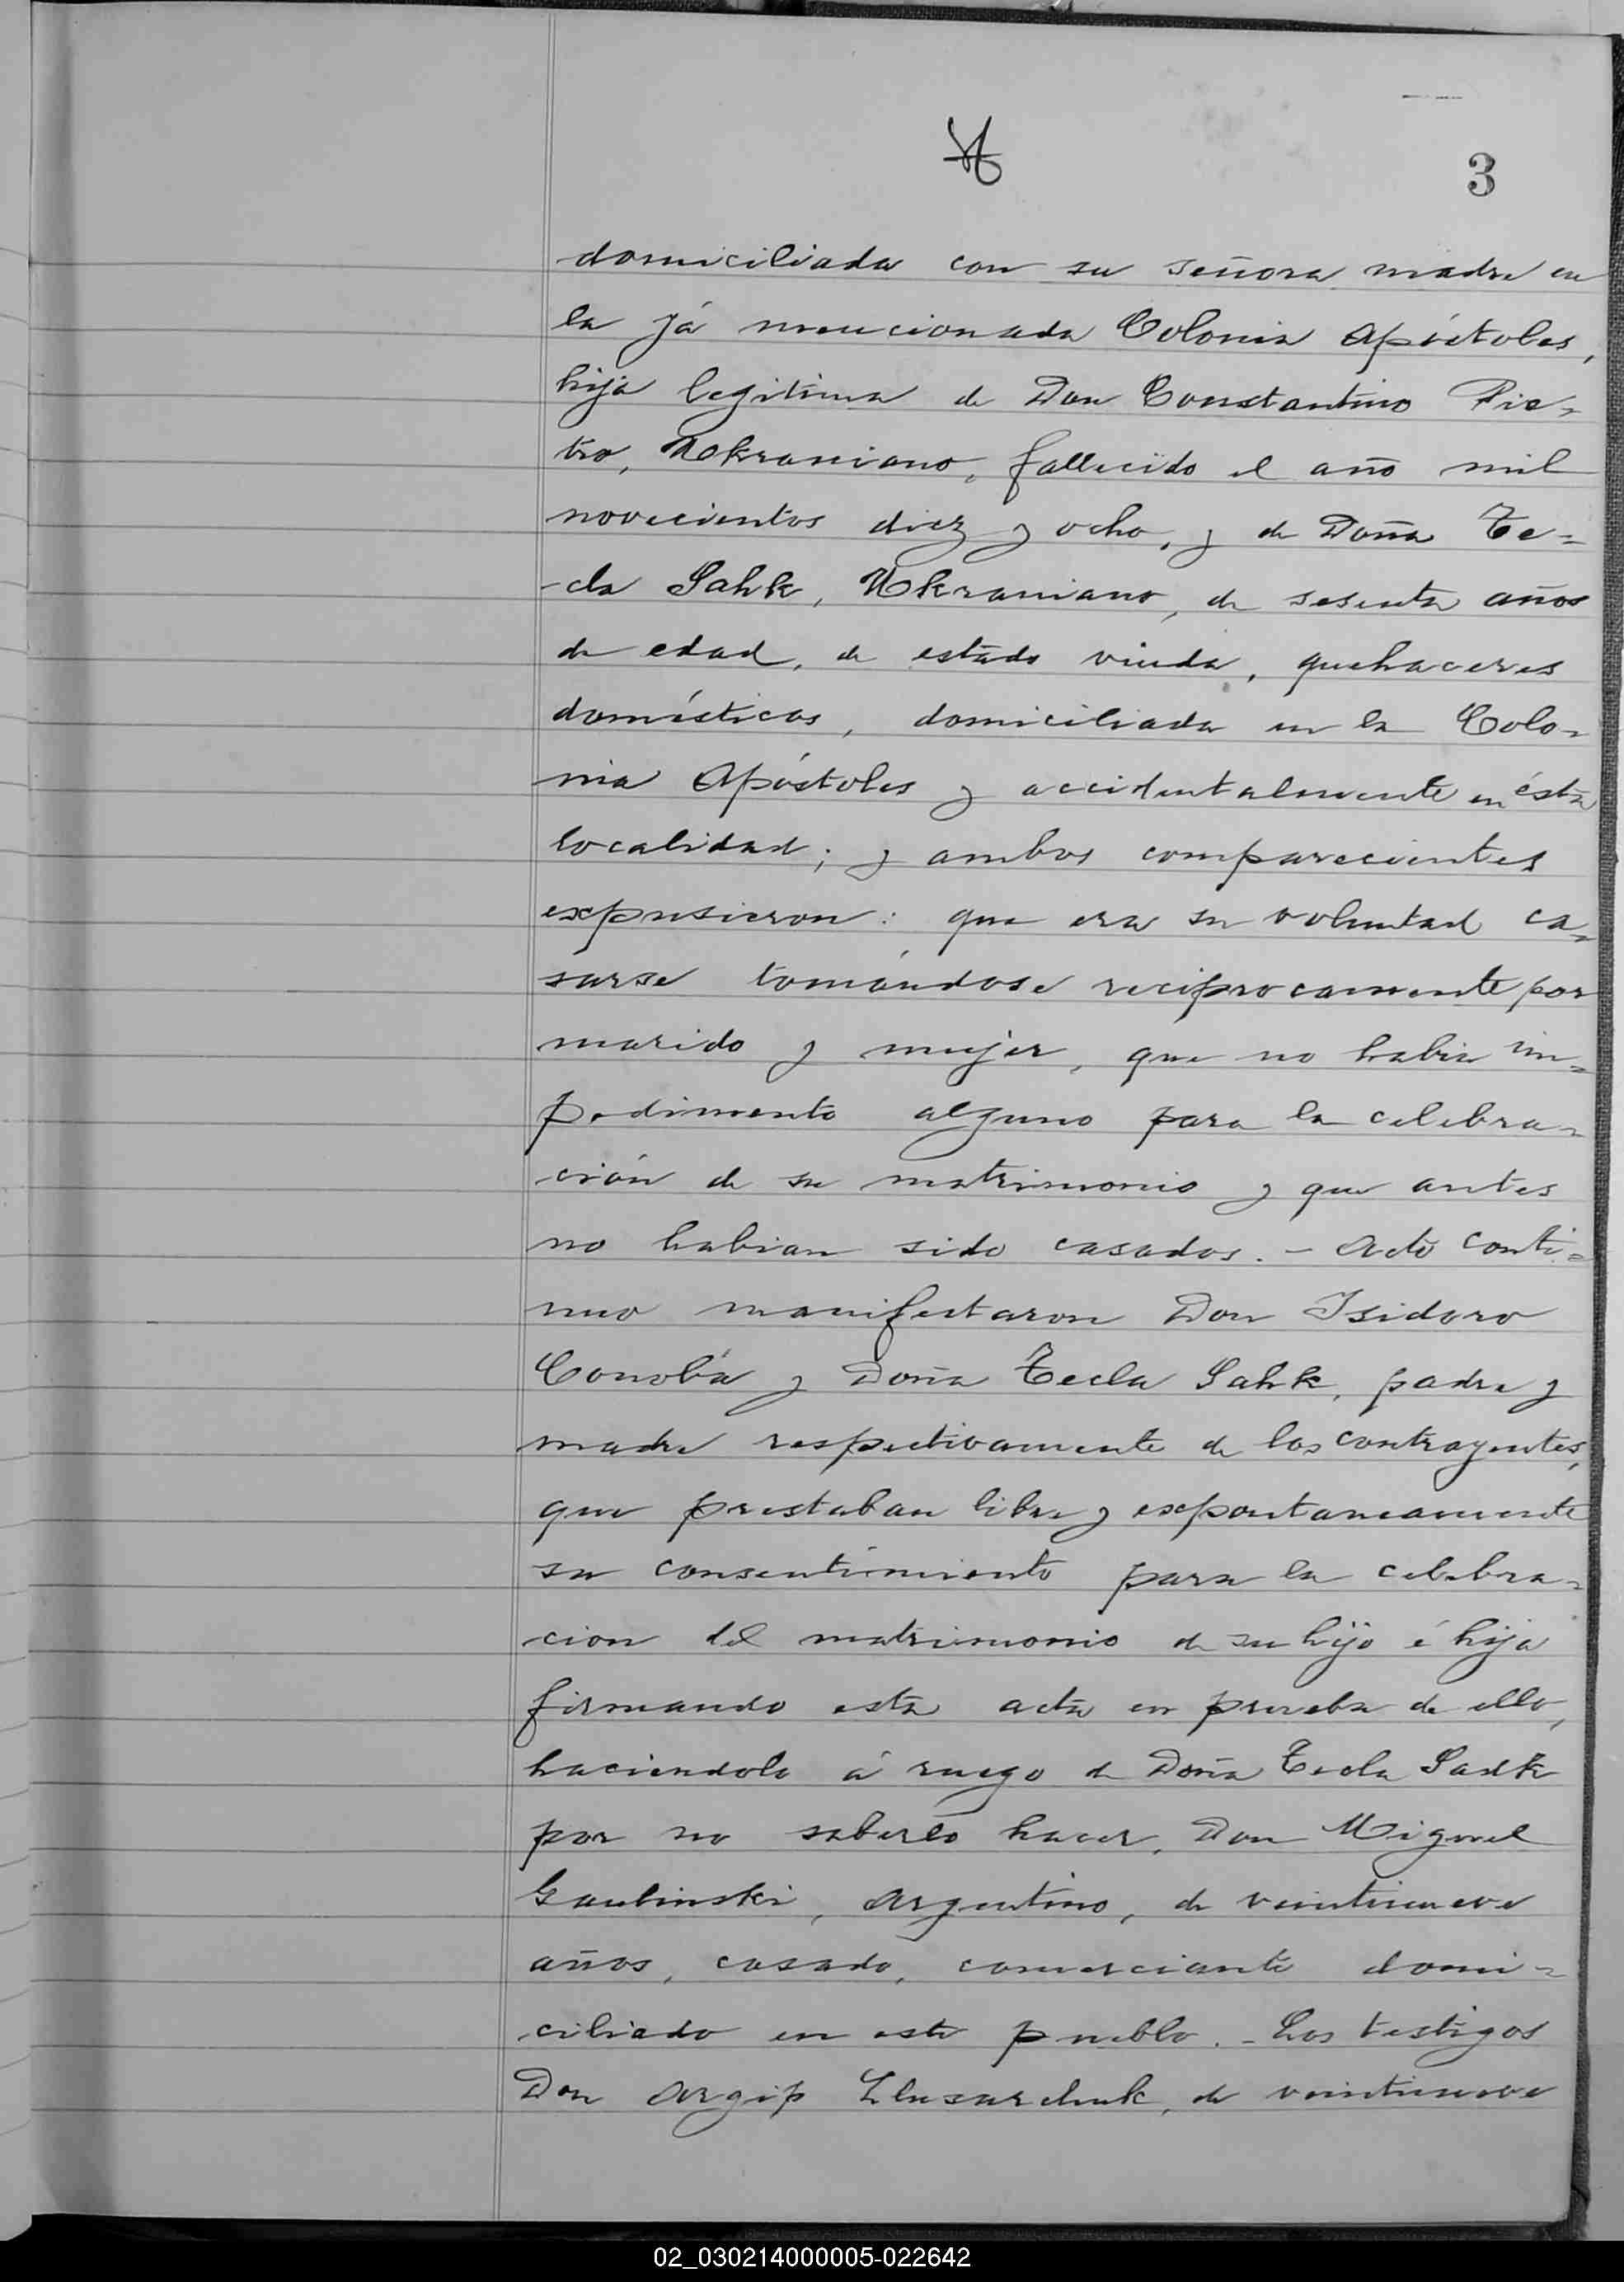 3
domiciliada con su señora madre en
la já mencionada Colonia Apóstoles,
hija legitima de Don Constantino Pie=
tro, Ukraniano, fallecido el año mil
novecientos diez y ocho, y de Doña Te=
-cla Sahk, Ukraniano, de sesenta años
de edad, de estado viuda, quehaceres
domésticos, domiciliada en la Colo=
nia Apóstoles y accidentalmente en ésta
localidad; y ambos comparecientes
expusieron: que era su voluntad ca=
sarse tomándose reciprocamente por
marido y mujer, que no habia im=
pedimento alguno para la celebra=
ción de su matrimonio y que antes
no habian sido casados. - Acto conti=
nuo manifestaron Don Isidoro
Conobá y Doña Tecla Sahk, padre y
madre respectivamente de los contrayentes,
que prestaban libre y expontaneamente
su consentimiento para la celebra=
cion del matrimonio de su hijo é hija
firmando esta acta en prueba de ello,
haciendolo á ruego de Doña Tecla Sadk
por no saberlo hacer, Don Miguel
Gaubinski, Argentino, de veintinueve
años, casado, comerciante domi=
ciliado en este pueblo. - Los testigos
Don Argip Llusarchuk, de veintinueve
02_030214000005-022642